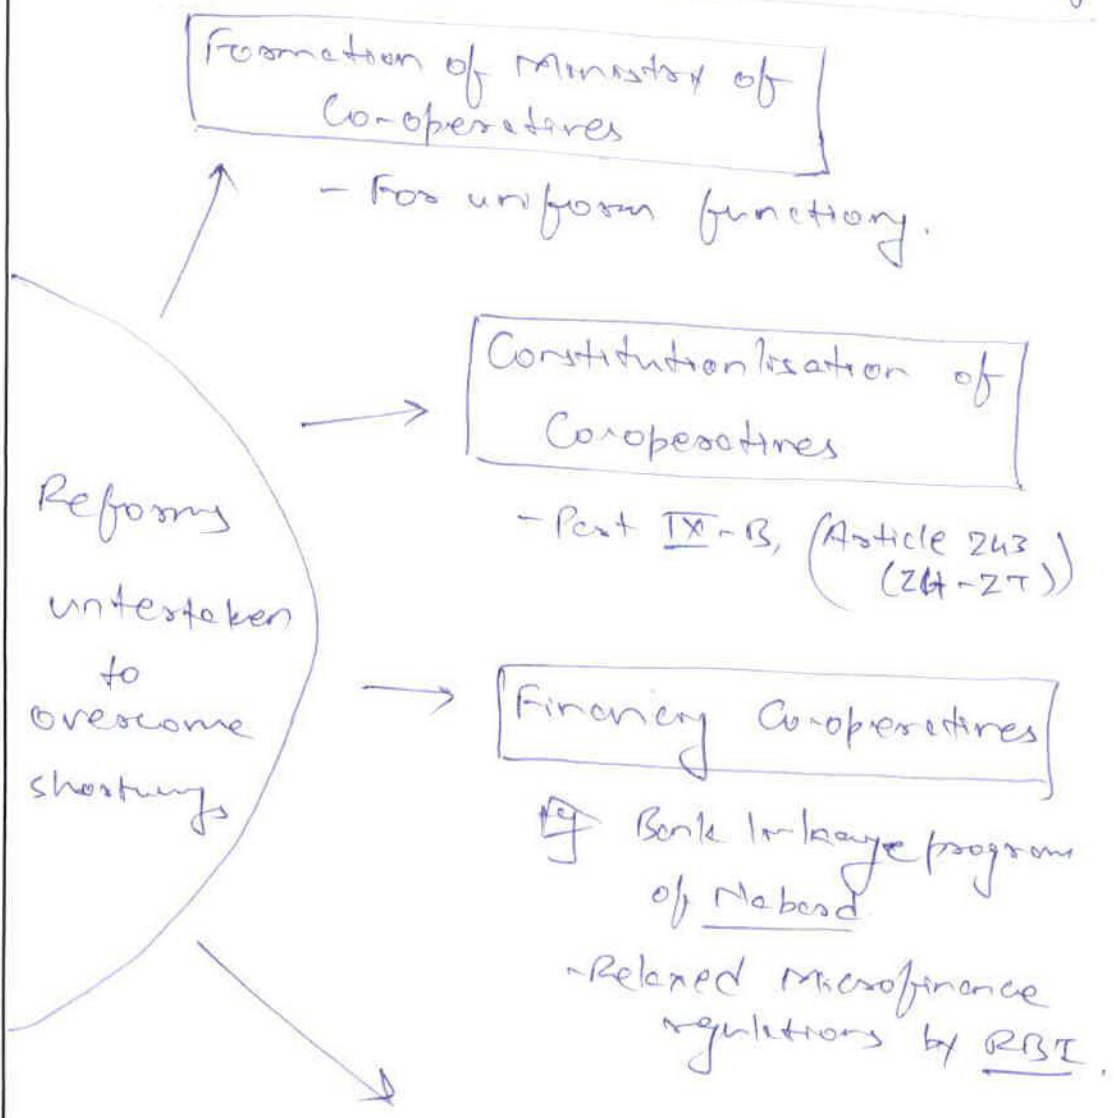 Formation of Ministry of
Co-operatives
- For uniform functiong.
Constitutionlisation of
Co-operatives
- Part IX-B, (Article 243
(ZH - ZT))
Reforms
untertaken
to
overcome
shortcungs
Financing Co-operatives
Eg Bank linkage program
of Nabard
- Relaxed Microfinance
regulations by RBI.